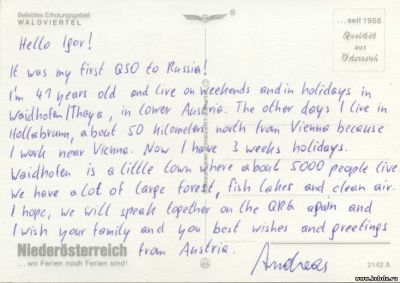 Beliebtes Erholungsgebiet
WALDVIERTEL
...seit 1958
Qualität
aus
Österreich
Hello Igor!
It was my first QSO to Russia!
I'm 41 years old and live on weekends and in holidays in
Waidhofen/Thaya, in lower Austria. The other days I live in
Hollabrunn, about 50 kilometers north from Vienna because
I work near Vienna. Now I have 3 weeks holidays.
Waidhofen is a little town where about 5000 people live.
We have a lot of large forest, fish lakes and clean air.
I hope, we will speak together on the QRG again and
I wish your family and you best wishes and greetings
from Austria.
Andreas
Niederösterreich
...wo Ferien noch Ferien sind!
2142 A
www.kxbdx.ru